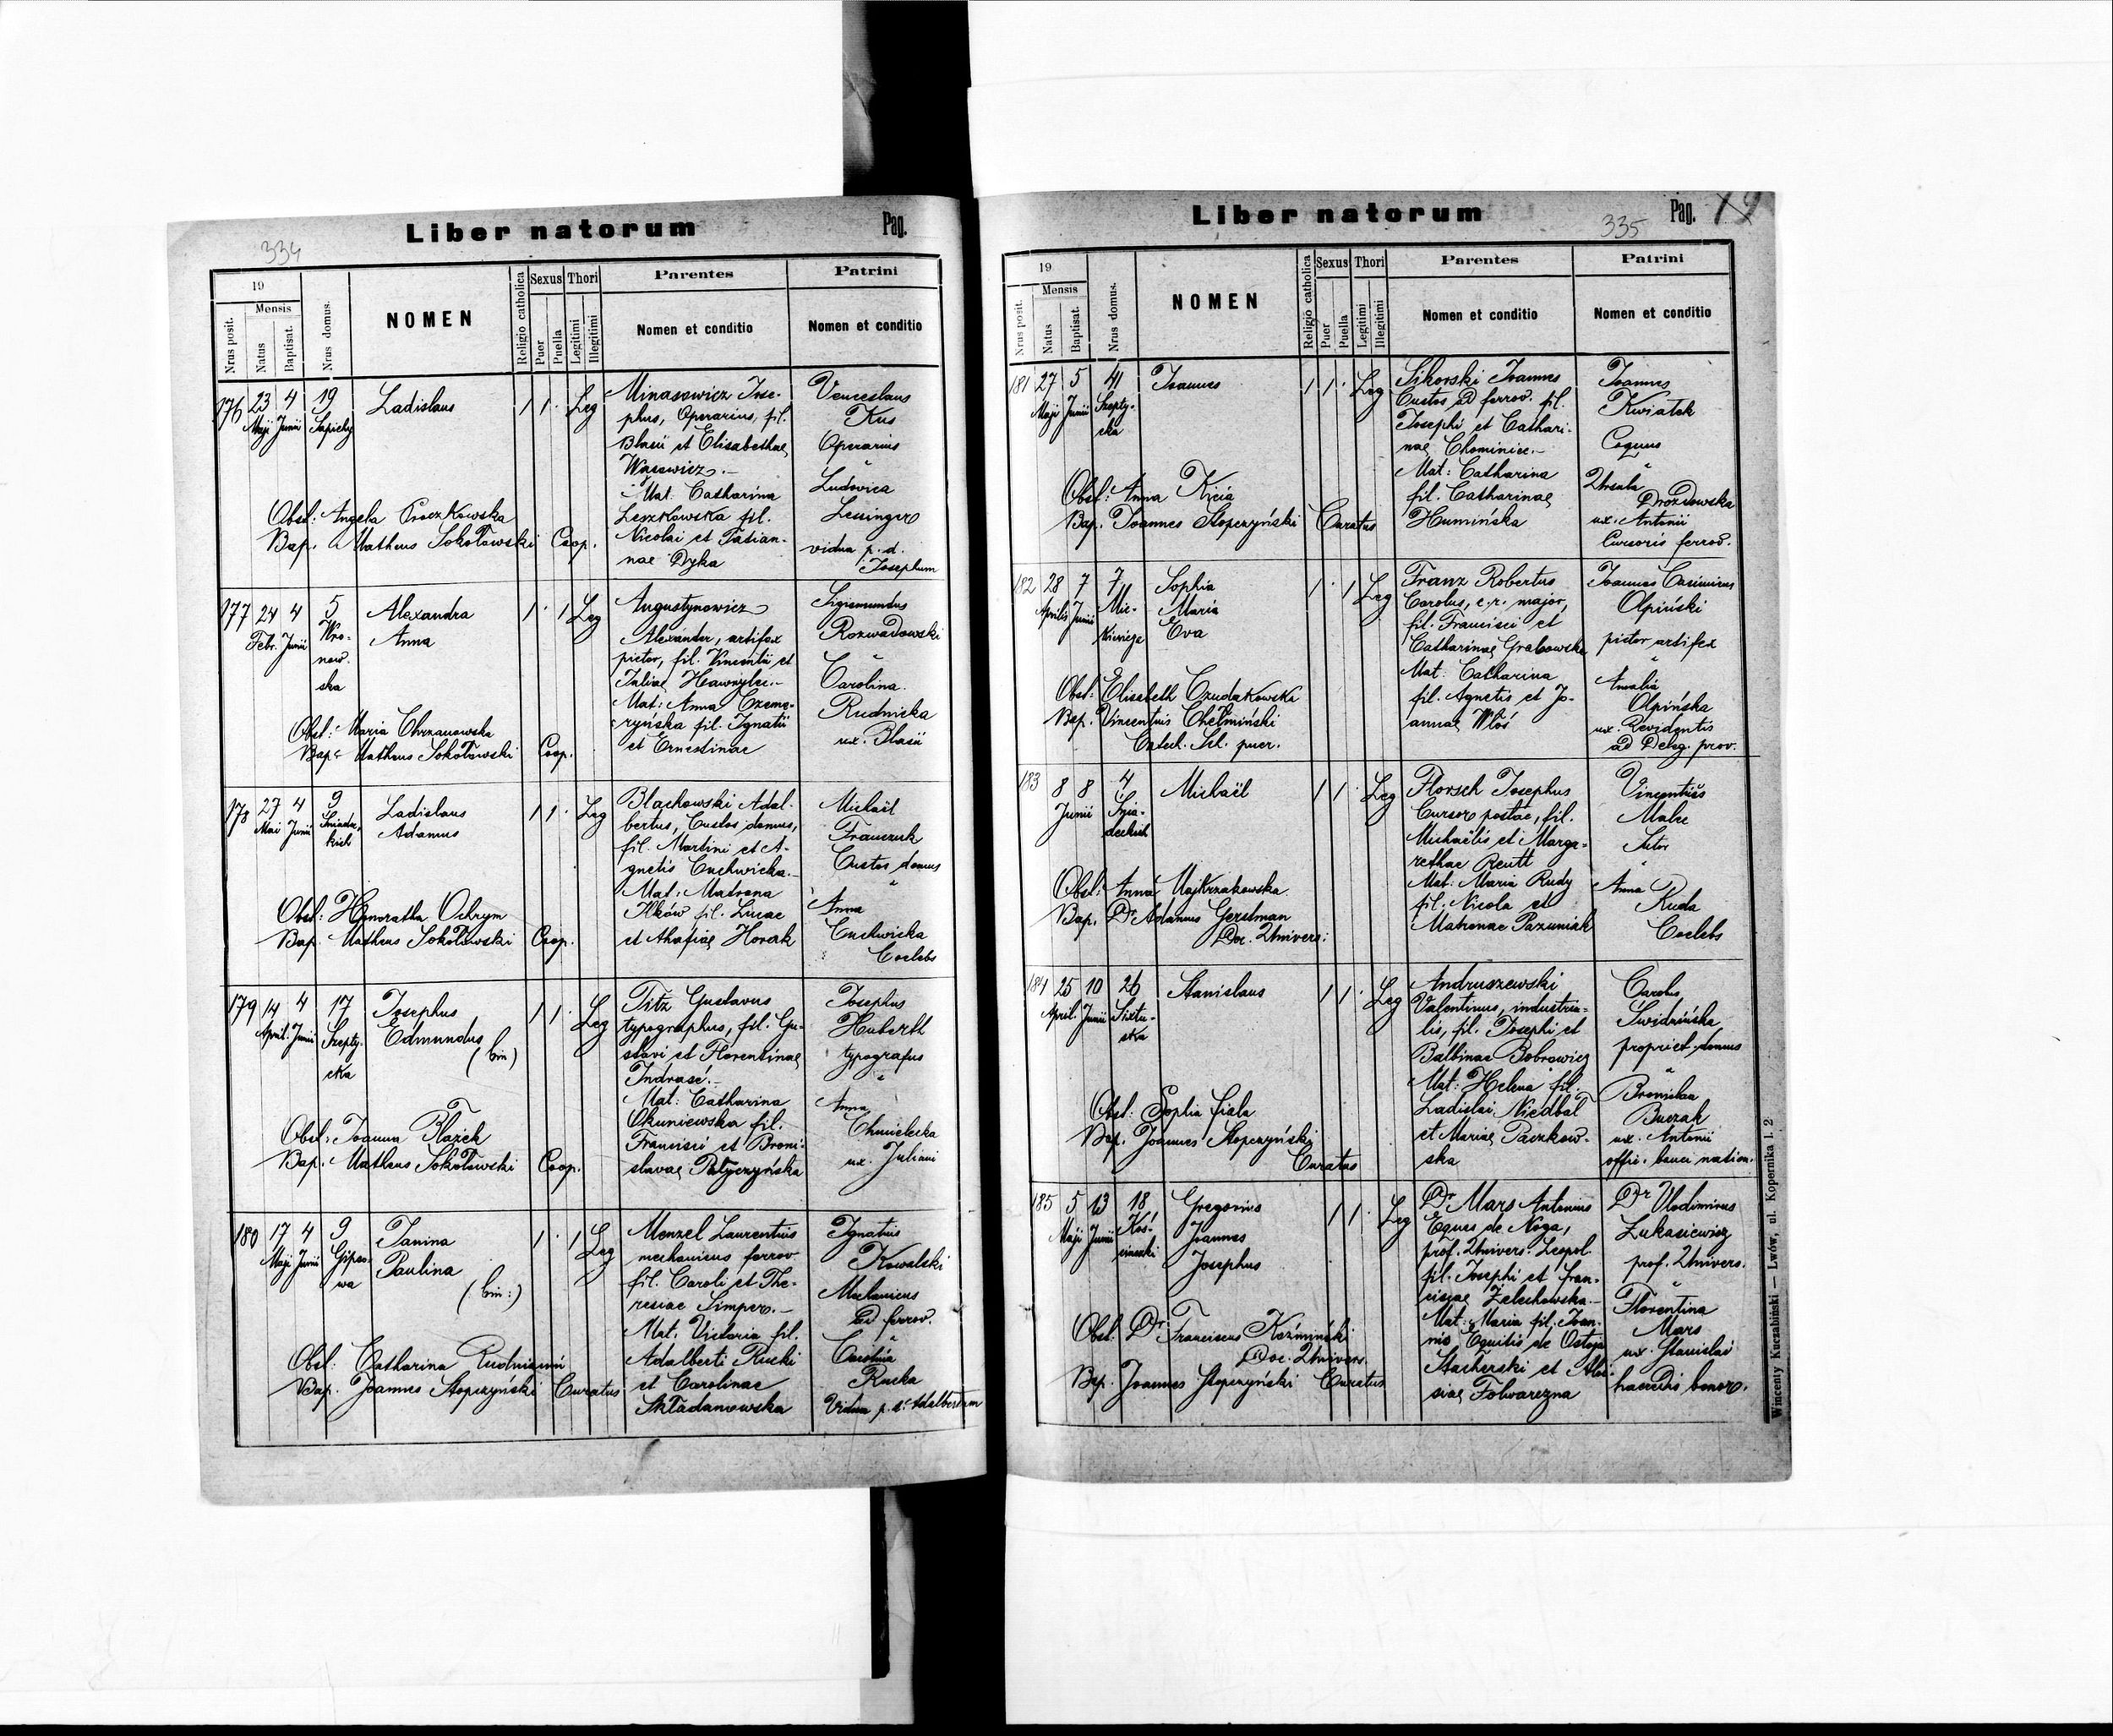 Liber natorum
Pag.
334
19
Mensis
Nrus posit.
Natus
Baptisat.
Nrus domus.
NOMEN
Religio catholica
Sexus
Puer
Puella
Thori
Legitimi
Illegitimi
Parentes
Nomen et conditio
Patrini
Nomen et conditio
176 23 4 19 Ladislaus 1 1 Leg
Maji Junii Sapiehy
Minasowicz Jose-
phus, Operarius, fil.
Blasii et Elisabethae
Wąsowicz.-
Mat. Catharina
Leszkowska fil.
Nicolai et Tatian-
nae Dyka
Venceslaus
Kus
Operarius
"
Ludovica
Lessinger
vidua p. d.
Josephum
Obst: Angela Proczkowska
Bap. Matheus Sokołowski Coop.
177 24 4 5 Alexandra 1 1 Leg
Febr. Junii Wro-
now-
ska
Anna
Augustynowicz
Alexander, artifex
pictor, fil. Vincentii et
Juliae Hawryłec.-
Mat: Anna Czeme-
ryńska fil. Ignatii
et Ernestinae
Sigismundus
Rozwadowski
"
Carolina
Rudnicka
ux. Blasii
Obst: Maria Chrzanowska
Bap. Matheus Sokołowski Coop.
178 27 4 9 Ladislaus 1 1 Leg
Mai Junii Śniadec-
kich
Adamus
Blachowski Adal-
bertus, Custos domus,
fil. Martini et A-
gnetis Cuchwicka.-
Mat. Matrona
Ilków fil. Lucae
et Ahafiae Horak
Michaël
Franczuk
Custos domus
"
Anna
Cuchwicka
Coelebs
Obst: Honoratha Ochrym
Bap. Matheus Sokołowski Coop.
179 14 4 17 Josephus 1 1 Leg
April. Junii Szepty-
cka
Edmundus
(bin)
Titz Gustavus
typographus, fil. Gu-
stavi et Florentinae
Indrasé.-
Mat: Catharina
Okuniewska fil.
Francisci et Broni-
slavae Patyczyńska
Josephus
Huberth
typografus
"
Anna
Chmielecka
ux. Juliani
Obst: Joanna Błażek
Bap. Matheus Sokołowski Coop.
180 17 4 9 Janina 1 1 Leg
Maji Junii Gipso-
wa
Paulina
(bin:)
Menzel Laurentius
mechanicus ferrov
fil. Caroli et The-
resiae Simper.-
Mat. Victoria fil.
Adalberti Rucki
et Carolinae
Składanowska
Ignatius
Kowalski
Mechanicus
ad ferrov.
"
Carolina
Rucka
Vidua p. d. Adalbertum
Obst: Catharina
Bap. Joannes Stopczyński Curatus
Liber natorum
335
Pag. 19
19
Mensis
Nrus posit.
Natus
Baptisat.
Nrus domus.
NOMEN
Religio catholica
Sexus
Puer
Puella
Thori
Legitimi
Illegitimi
Parentes
Nomen et conditio
Patrini
Nomen et conditio
181 27 5 41 Joannes 1 1 Leg
Maji Junii Szepty-
cka
Sikorski Joannes
Custos ad ferrov. fil.
Josephi et Cathari-
nae Chominiec.-
Mat: Catharina
fil. Catharinae
Humińska
Joannes
Kwiatek
Coquus
"
Ursula
Drozdowska
ux. Antonii
Cursoris ferrov.
Obst: Anna Kicia
Bap. Joannes Stopczyński Curatus
182 28 7 7 Sophia 1 1 Leg
Aprilis Junii Mic-
kiewicza
Maria
Eva
Franz Robertus
Carolus, c.r. major,
fil. Francisci et
Catharinae Grabowska
Mat: Catharina
fil. Agnetis et Jo-
annae Włoś
Joannes Casimirus
Olpiński
pictor artifex
"
Amalia
Olpińska
ux. Revidentis
ad Deleg. prov.
Obst: Elisabeth Czudakowski
Bap. Vincentius Chełmiński
Catech. Sch. puer.
183 8 8 4 Michaël 1 1 Leg
Junii Śnia-
deckich
Florsch Josephus
Cursor postae, fil.
Michaëlis et Marga-
rethae Reutt
Mat: Maria Rudy
fil. Nicola et
Matronae Pazuniak
Vincentius
Malec
Sutor
"
Anna
Ruda
Coelebs
Obst: Anna Majkrzakowska
Bap. Dr Adamus Gerstman
Doc. Univers:
184 25 10 26 Stanislaus 1 1 Leg
April. Junii Sixtu-
ska
Andruszewski
Valentinus, industria-
lis, fil. Josephi et
Balbinae Bobrowicz
Mat: Helena fil.
Ladislai Niedbal
et Mariae Paczkow-
ska
Carolus
Swidzińska
propriet. domus
"
Bronislaa
Buczak
ux. Antonii
offic. banci nation.
Obst: Sophia Fiala
Bap. Joannes Stopczyński
Curatus
185 5 13 18 Gregorius 1 1 Leg
Maji Junii Koś-
ciuszki
Joannes
Josephus
Dr Mars Antonius
Eques de Noga,
prof. Univers. Leopol.
fil. Josephi et Fran-
ciscae Żelechowska.-
Mat: Maria fil. Joan-
nis Equitis de Ostoja
Stacherski et Aloi-
siae Folwarczna
Dr Vlodimirus
Łukasiewicz
prof. Univers.
"
Florentina
Mars
ux. Stanislai
haeredis bonor.
Obst: Dr Franciscus Kośmiński
Doc. Univers.
Bap. Joannes Stopczyński Curatus
Wincenty Kuczabiński — Lwów, ul. Kopernika l. 2